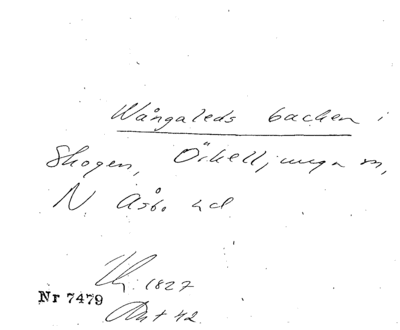 Wångaleds backen i
Skogen, Örkelljunga sn,
N. Åsbo hd
1827
Nr 7479
42